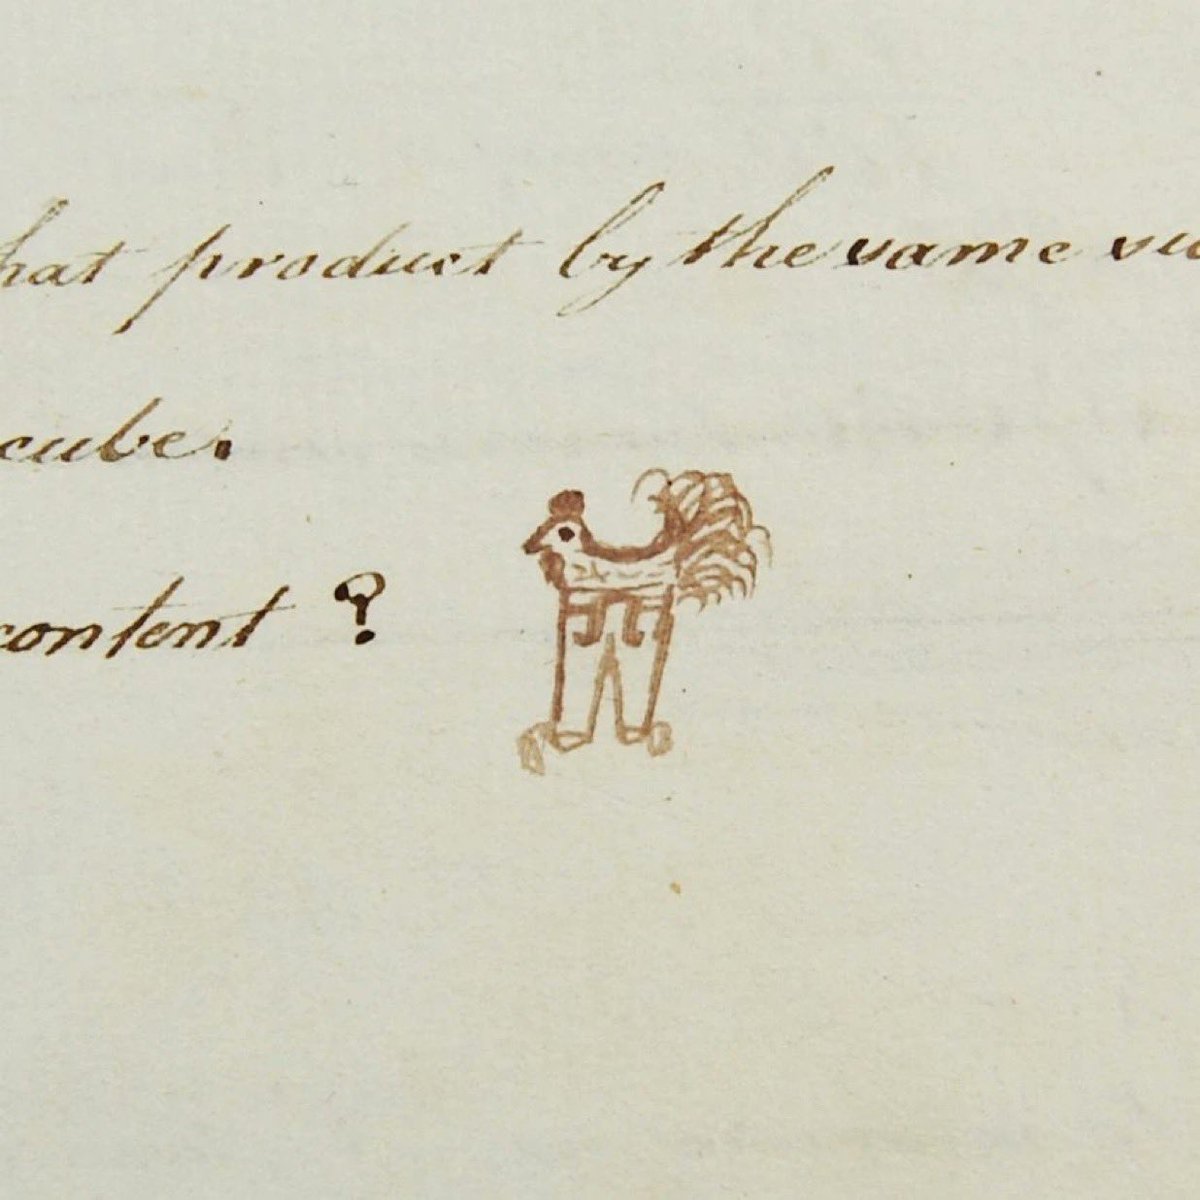 hat product by the same su
cube.
content ?